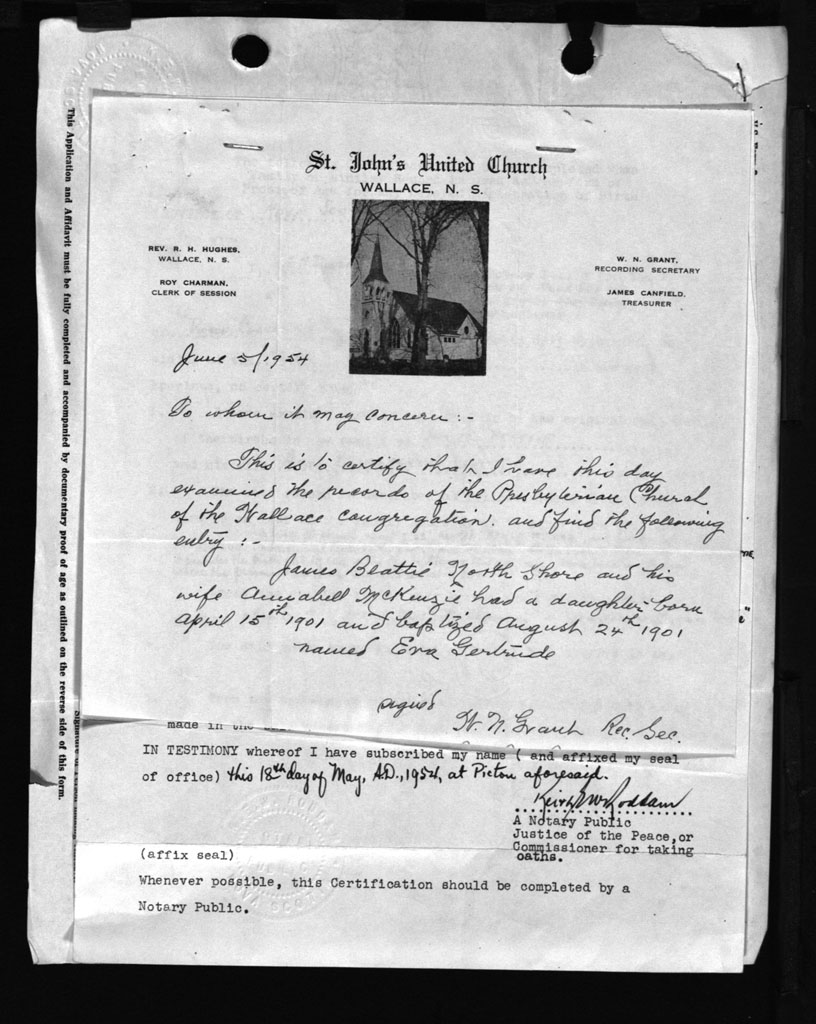 This Application and Affidavit must be fully completed and accompanied by documentary proof of age as outlined on the reverse side of this form.
St. John's United Church
WALLACE, N. S.
REV. R. H. HUGHES,
WALLACE, N. S.
ROY CHARMAN,
CLERK OF SESSION
W. N. GRANT,
RECORDING SECRETARY
JAMES CANFIELD,
TREASURER
June 5/1954
To whom it may concern :-
This is to certify that I have this day
examined the records of the Presbyterian Church
of the Wallace congregation. and find the following
entry :-
James Beattie North Shore and his
wife Annabell McKenzie had a daughter born
April 15th 1901 and baptized August 24th 1901
named Eva Gertrude
signed
W. N. Grant Rec. Sec.
made in the
IN TESTIMONY whereof I have subscribed my name ( and affixed my seal
of office) this 18th day of May, A.D., 1954, at Pictou aforesaid.
A Notary Public
Justice of the Peace, or
Commissioner for taking
oaths.
(affix seal)
Whenever possible, this Certification should be completed by a
Notary Public.